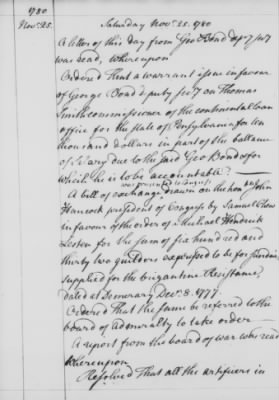 1780
Nov. 25.
Saturday Nov. 25. 1780
A letter of this day from Geo Bond dep y sec y
was read, whereupon
Ordered That a warrant issue in favour
of George Bond deputy sec y on Thomas
Smith commissioner of the continental loan
office for the state of Pensylvania for ten
thousand dollars in part of the ballance
of salary due to the said Geo Bond & for
which he is to be accountable
was presented to Congress
A bill of exchange drawn on the hon ble John
Hancock president of Congress by Samuel
in favour of the order of Michael Hendrick
for the sum of six hundred and
thirty two guilders expended to be for sundries
supplied for the brigantine Resistance,
dated at Demerary Dec r. 8. 1777.
Ordered That the same be referred to the
board of admiralty to take order
A report from the board of war was read
whereupon
Resolved That all the artificers in